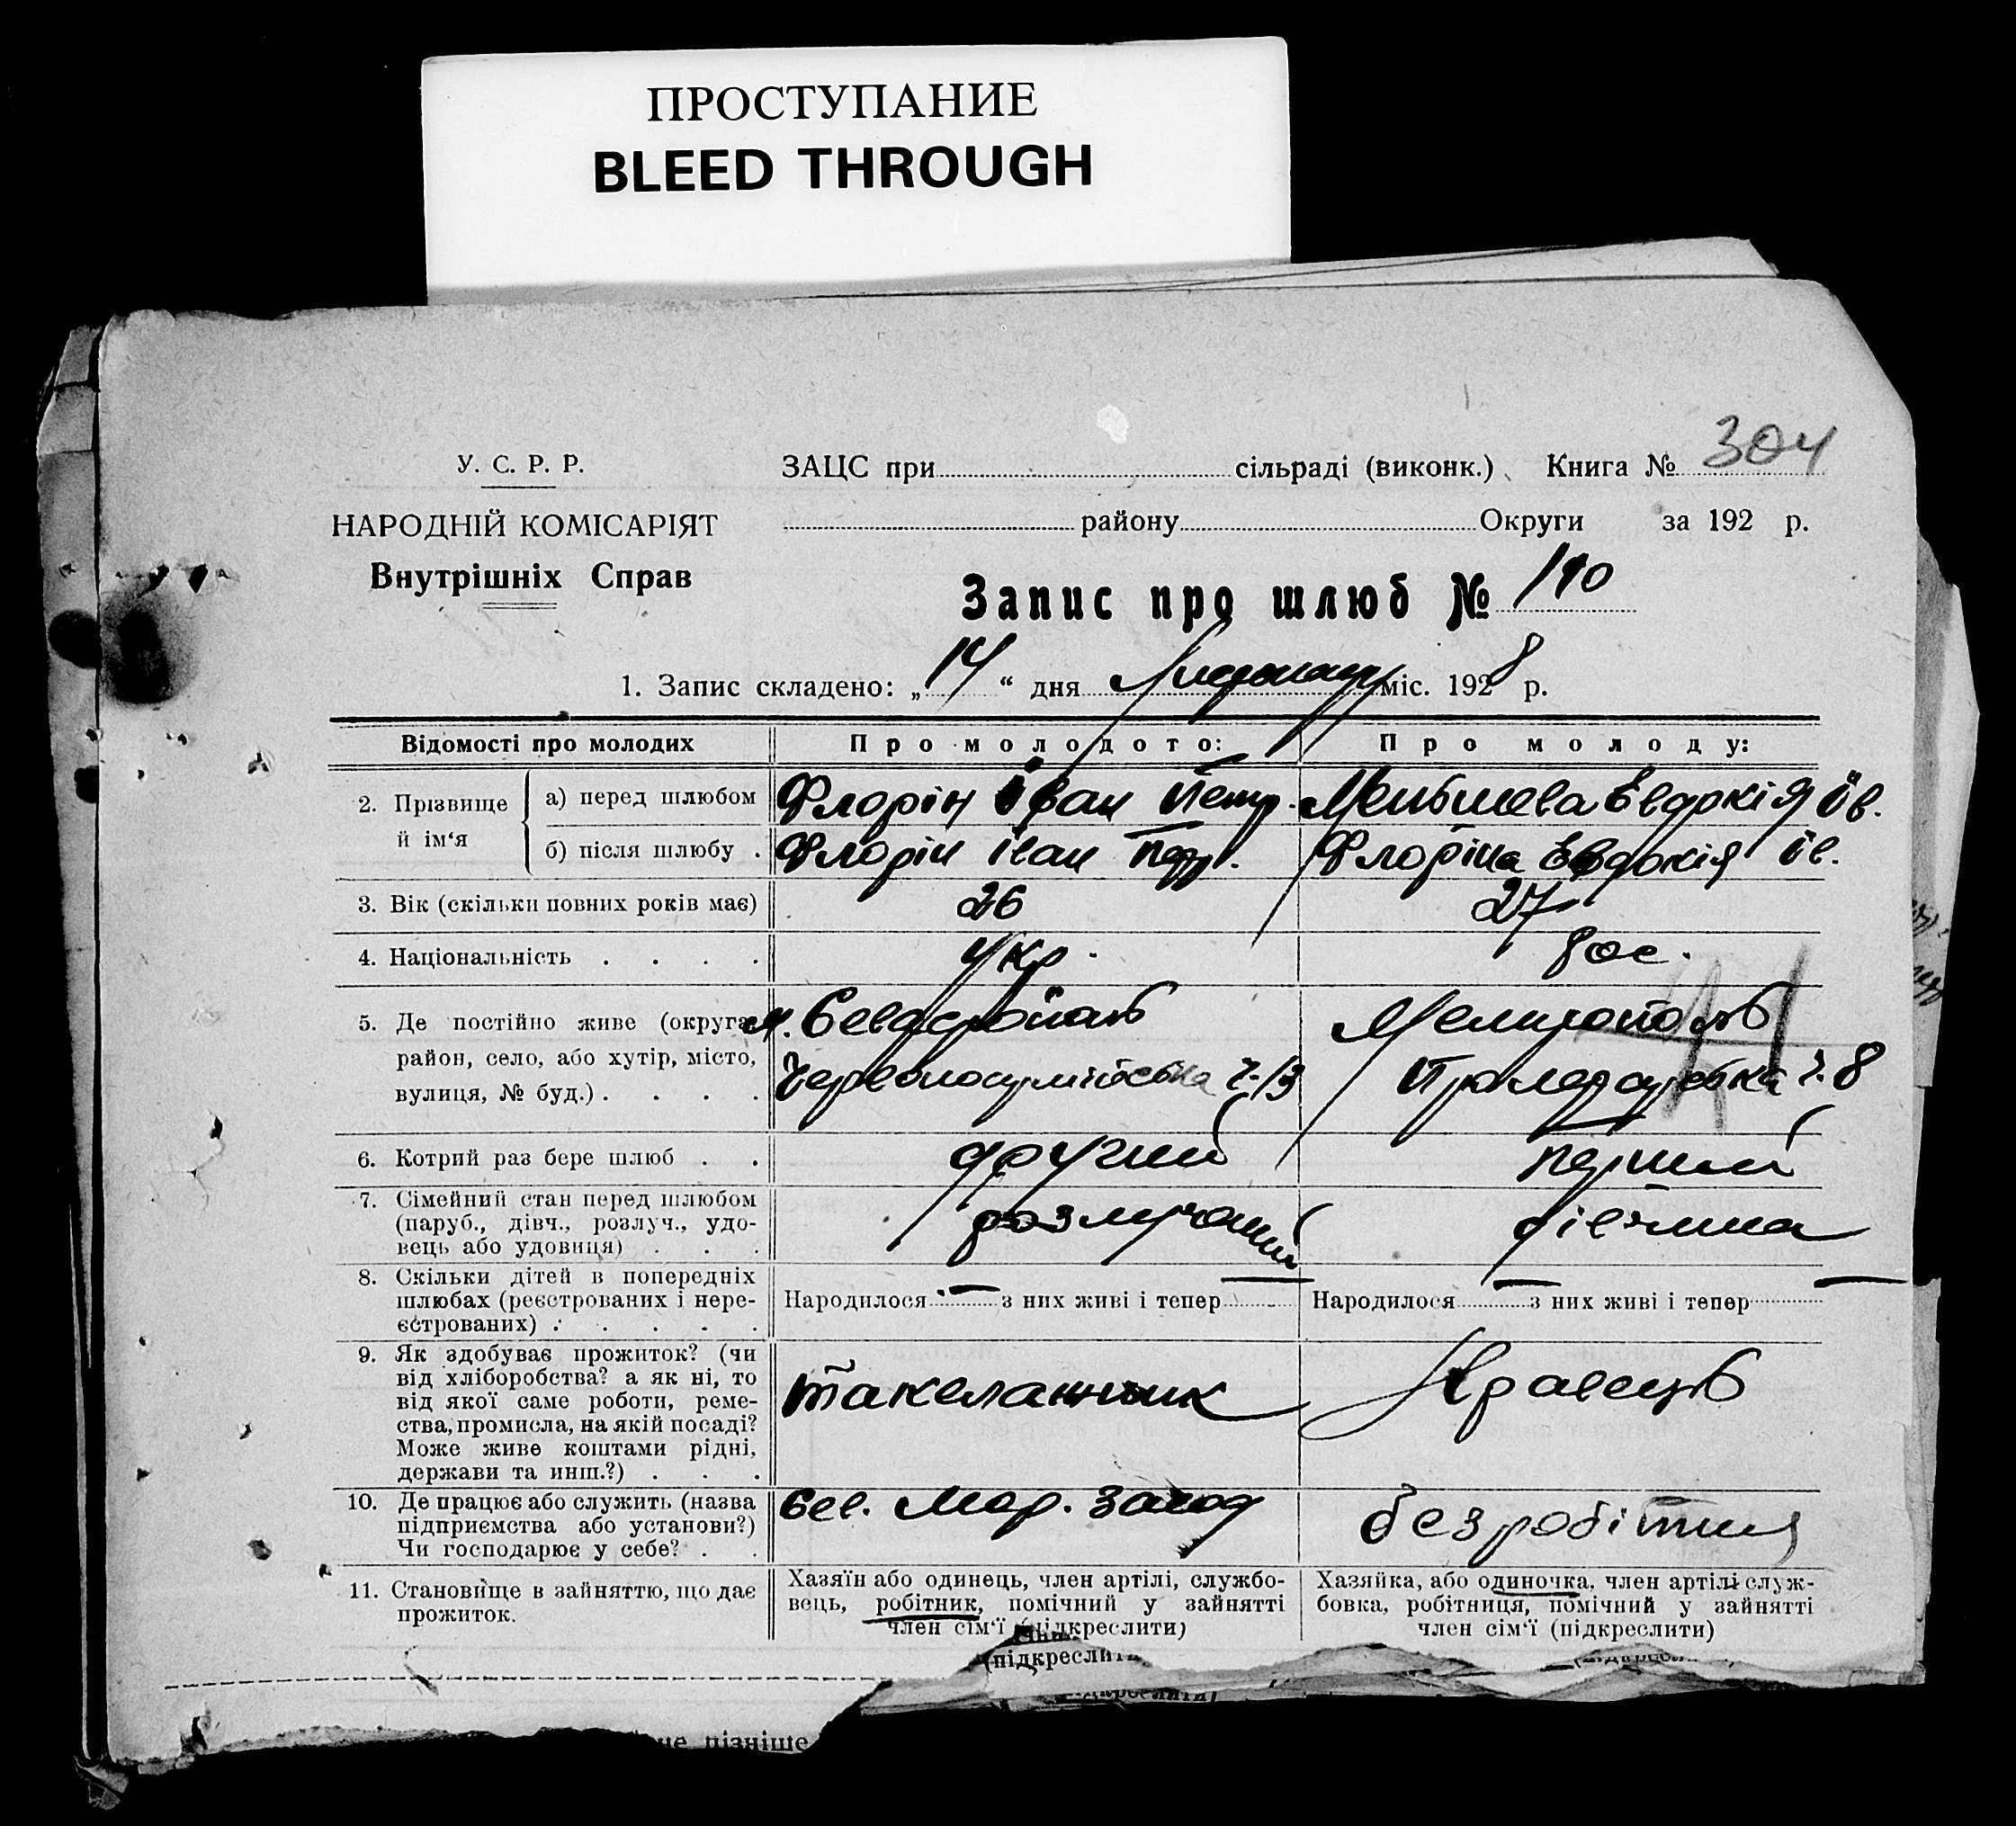 ПРОСТУПАНИЕ
BLEED THROUGH
У. С. Р. Р.
НАРОДНІЙ КОМІСАРІЯТ
Внутрішніх Справ
ЗАЦС при сільраді (виконк.) Книга № 304
району Округи за 192 р.
Запис про шлюб № 190
1. Запис складено: „14“ дня Листопаду міс. 1928 р.
Відомості про молодих
Про молодого:
Про молоду:
2. Прізвище й ім‘я
а) перед шлюбом
Флорін Іван Петр.
Евдокія Ів.
б) після шлюбу .
Флорін Іван Петр.
Флоріна Евдокія Ів.
3. Вік (скільки повних років має)
26
27
4. Національність . . . .
укр.
рос.
5. Де постійно живе (округа,
район, село, або хутір, місто,
вулиця, № буд.) . . . .
м. Севастопаль
ч. 13
Мелитополь
ч. 8
6. Котрий раз бере шлюб . .
другий
перший
7. Сімейний стан перед шлюбом
(паруб., дівч., розлуч., удо-
вець або удовиця) . . .
розлучоний
дівчина
8. Скільки дітей в попередніх
шлюбах (реєстрованих і нере-
єстрованих) . . . . .
Народилося — з них живі і тепер —
Народилося — з них живі і тепер —
9. Як здобуває прожиток? (чи
від хліборобства? а як ні, то
від якої саме роботи, реме-
ства, промисла, на якій посаді?
Може живе коштами рідні,
держави та инш.?) . . .
такелажник
Кравець
10. Де працює або служить (назва
підприємства або установи?)
Чи господарює у себе? . .
Сев. Мор. Завод
безробітня
11. Становище в зайняттю, що дає
прожиток.
Хазяїн або одинець, член артілі, службо-
вець, робітник, помічний у зайнятті
член сім‘ї (підкреслити)
Хазяйка, або одиночка, член артілі служ-
бовка, робітниця, помічний у зайнятті
член сім‘ї (підкреслити)
пізніше